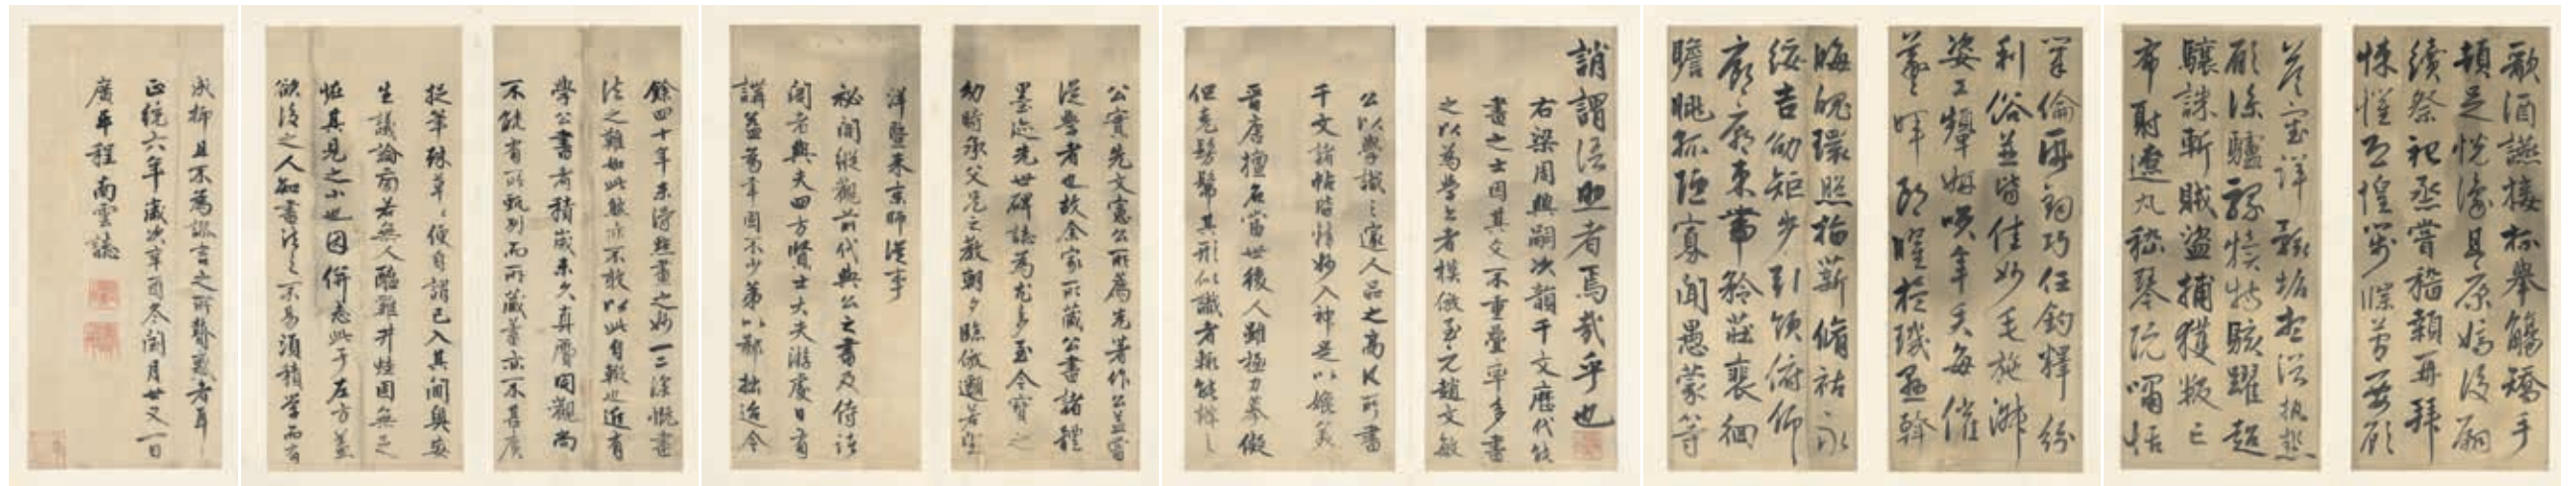 歌酒讌接杯舉觴矯手
頓足悅豫且康嫡後嗣
續祭祀烝嘗稽顙再拜
悚懼恐惶牋牒簡要顧
答審詳骸垢想浴執熱
願涼驢騾犢特駭躍超
驤誅斬賊盜捕獲叛亡
布射遼丸嵇琴阮嘯恬
筆倫紙鈞巧任釣釋紛
利俗並皆佳妙毛施淑
姿工顰妍咲年矢每催
羲暉朗曜旋璣懸斡
晦魄環照指薪脩祜永
綏吉劭矩步引領俯仰
廊廟束帶矜莊裴徊
瞻眺孤陋寡聞愚蒙等
誚謂語助者焉哉乎也
右梁周興嗣次韻千文歷代能
書之士因其文不重疊率多書
之以為學者模倣至元趙文敏
公以學識之邃人品之高凡所書
千文諸帖皆精妙入神是以媲美
晉唐擅名當世後人雖極力摹倣
但克髣髴其形似識者輒能辨之
公實先文憲公所薦先著作公並嘗
從學者也故余家所藏公書諸體
墨迹先世碑誌為尤多至今寶之
幼時承父兄之教朝夕臨倣邈若望
洋暨來京師從事
祕閣縱觀前代與公之書及侍詔
閣者與夫四方賢士大夫游處日有
講益焉幸固不少第以鄙拙迨今
餘四十年未得點畫之妙一二深慨書
法之難如此然亦不敢以此自輟也近有
學公書者積歲未久真贗同觀尚
不能有所甄別而所藏蓄亦不甚廣
捉筆殊草草便自謂已入其閫奧妄
生議論旁若無人醯雞井蛙固無足
怪其見之小也因併志此于左方蓋
欲後之人知書法之不易須積學而有
成抑且不為諏言之所聾惑者耳
正統六年歲次辛酉冬閏月廿又一日
廣平程南雲誌